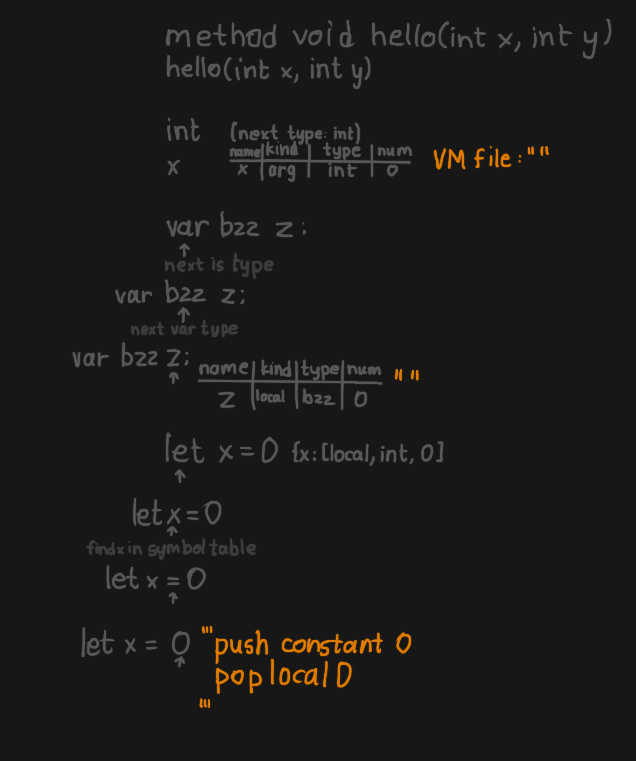 method void hello(int x, int y)
hello(int x, int y)
int (next type: int)
name kind type num
x x arg int 0 VM file: " "
var bzz z;
↑
next is type
var bzz z;
↑
next var type
var bzz z;
↑
name kind type num " "
z local bzz 0
let x = 0 {x: [local, int, 0]
↑
let x = 0
↑
find x in symbol table
let x = 0
↑
let x = 0 '''push constant 0
↑
pop local 0
'''